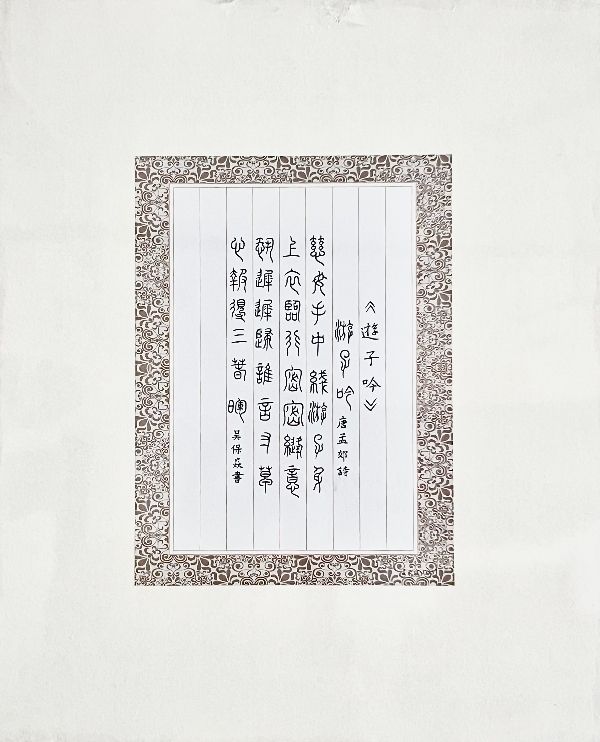 《遊子吟》
游子吟 唐孟郊詩
慈母手中綫游子身
上衣臨行密密縫意
恐遲遲歸誰言寸草
心報得三春暉 吳保焱書